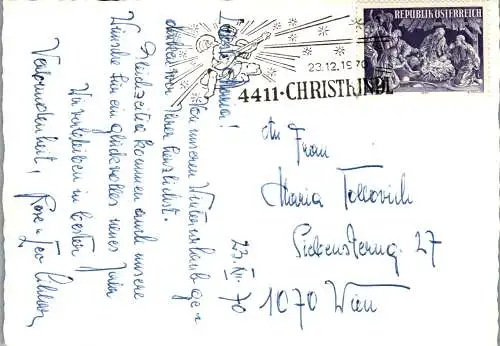 REPUBLIK ÖSTERREICH
23.12.1970
4411 · CHRISTKINDL
Liebe Maria!
Von unserem Winterurlaub ge-
denken wir Ihrer herzlichst.
Gleichzeitig kommen auch unsere
Wünsche für ein glückvolles neues Jahr
Wir verbleiben in bester
Verbundenheit, Rose u. Leo
23. XII. 70
An Frau
Maria
Siebensterng. 27
1070 Wien